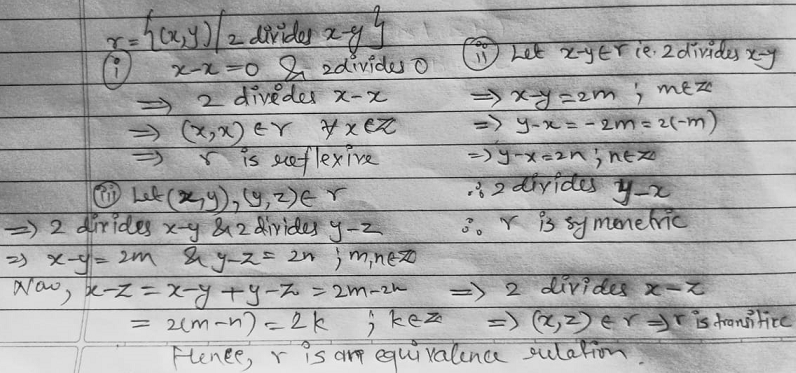 r = {(x,y) | 2 divides x-y}
(i) x-x=0 & 2 divides 0
⇒ 2 divides x-x
⇒ (x,x) ∈ r ∀ x ∈ Z
⇒ r is reflexive
(ii) Let x-y ∈ r ie. 2 divides x-y
⇒ x-y=2m ; m∈Z
⇒ y-x = -2m = 2(-m)
⇒ y-x=2n ; n∈Z
∴ 2 divides y-x
∴ r is symmetric
(iii) Let (x,y), (y,z) ∈ r
⇒ 2 divides x-y & 2 divides y-z
⇒ x-y = 2m & y-z = 2n ; m,n∈Z
Now, x-z = x-y+y-z = 2m-2n
= 2(m-n) = 2k ; k∈Z
⇒ 2 divides x-z
⇒ (x,z) ∈ r ⇒ r is transitive
Hence, r is an equivalence relation.